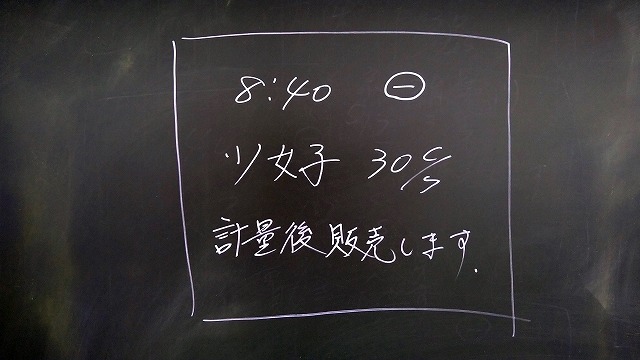 8:40 ㊀
ツ女子 30 c/s
計量後販売します.